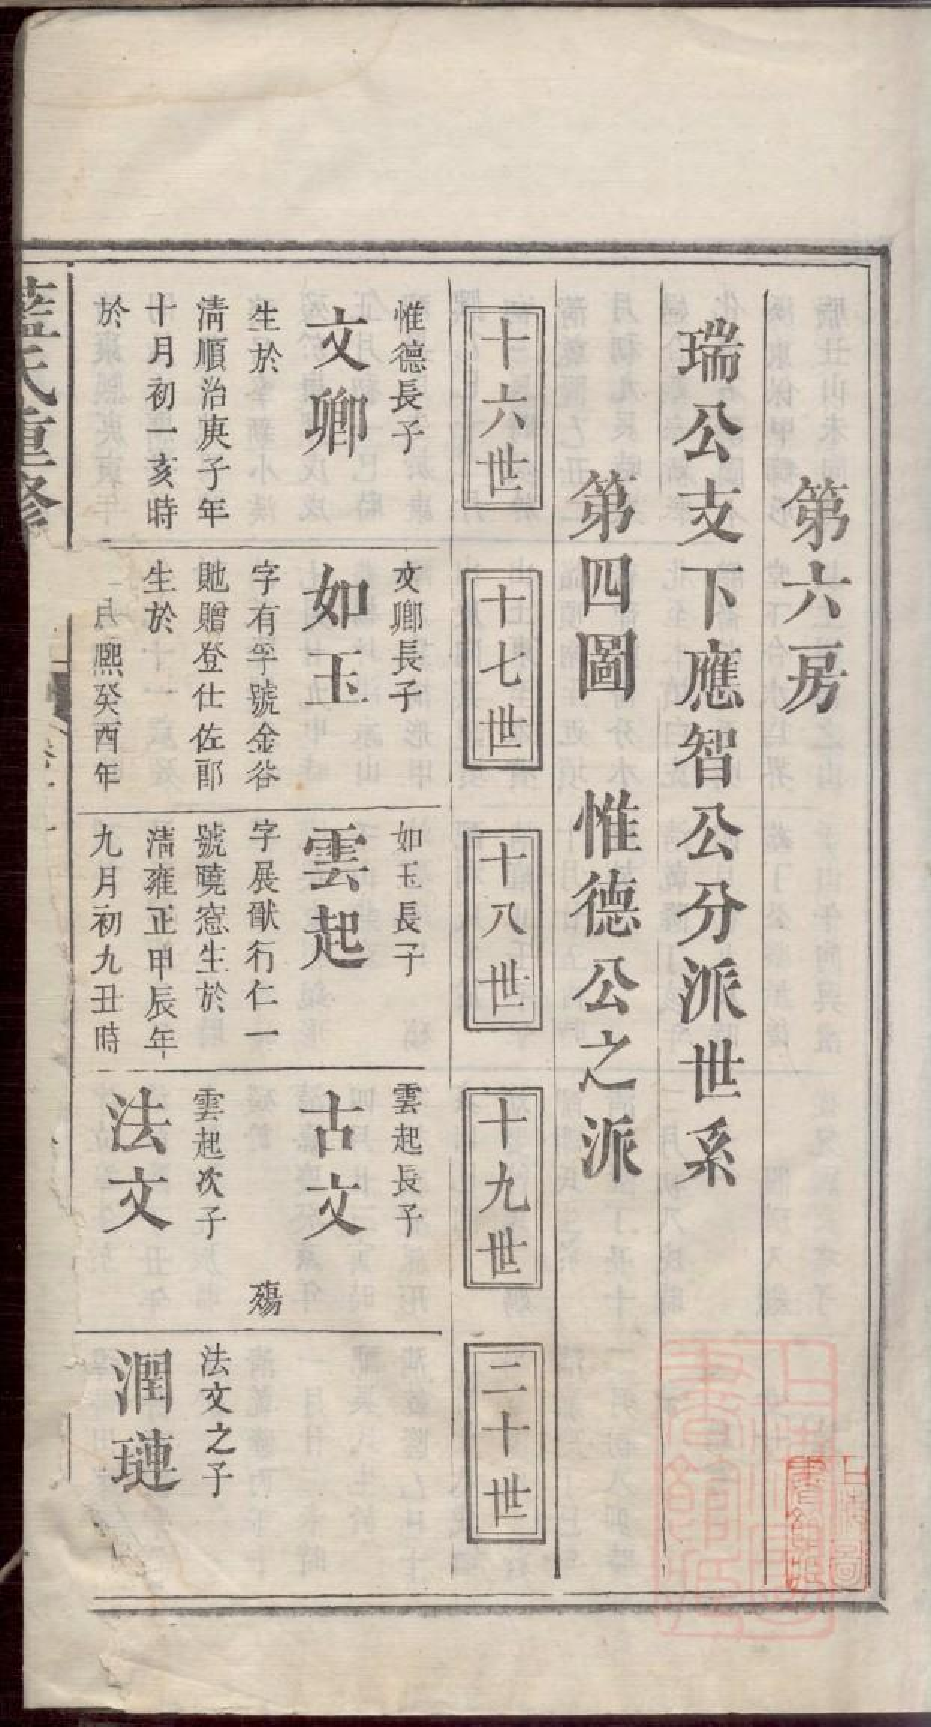 第六房
瑞公支下應智公分派世系
第四圖 惟德公之派
十六世
十七世
十八世
十九世
二十世
惟德長子
文卿
生於
淸順治庚子年
十月初一亥時
於
文卿長子
如玉
字有孚號金谷
貤贈登仕佐郎
生於
熈癸酉年
如玉長子
雲起
字展猷行仁一
號曉窓生於
淸雍正甲辰年
九月初九丑時
雲起長子
古文
殤
雲起次子
法文
法文之子
潤璉
藍氏重修